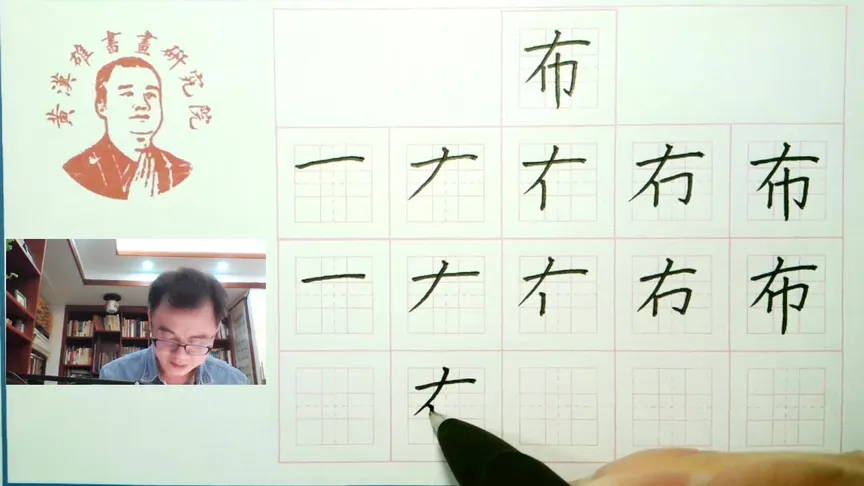 黄漢雄書畫研究院
布
一 𠂇 布
一 𠂇 布